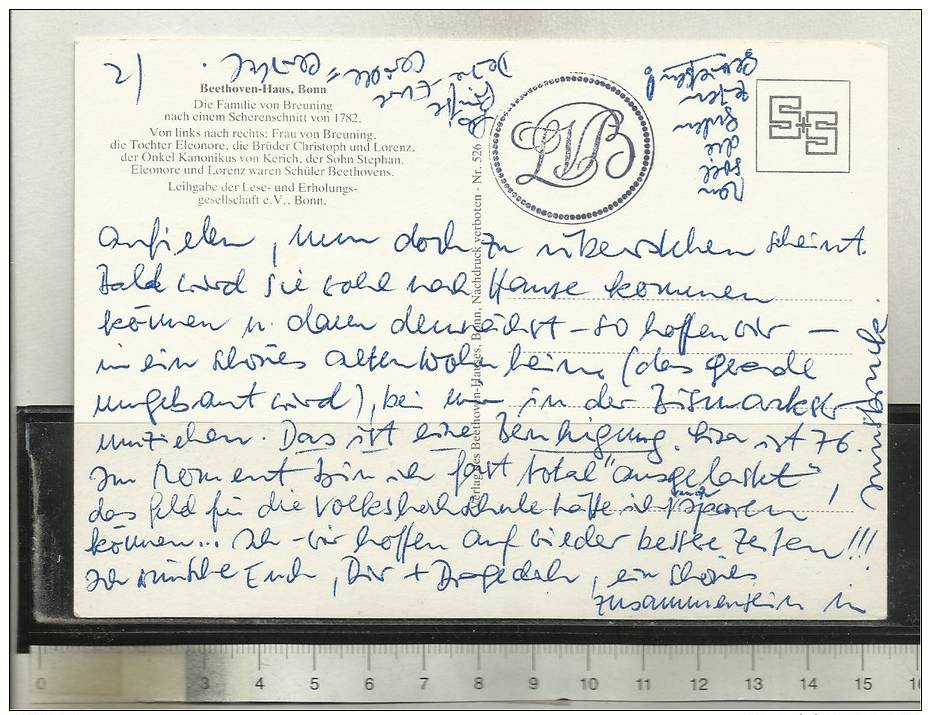 2)
Beethoven-Haus, Bonn
Die Familie von Breuning
nach einem Scherenschnitt von 1782.
Von links nach rechts: Frau von Breuning,
die Tochter Eleonore, die Brüder Christoph und Lorenz,
der Onkel Kanonikus von Kerich, der Sohn Stephan.
Eleonore und Lorenz waren Schüler Beethovens.
Leihgabe der Lese- und Erholungs-
gesellschaft e.V., Bonn.
Verlag des Beethoven-Hauses, Bonn, Nachdruck verboten - Nr. 526
LVB
S+S
anfielen, nun doch zu überstehen scheint.
Bald wird sie wohl nach Hause kommen
können u. dann demnächst - so hoffen wir -
in ein schönes Altenwohnheim (das gerade
umgebaut wird), bei in der Bismarckstr
umziehen. Das ist eine Beruhigung. ist 76.
Im Moment bin ich fast total "ausgelastet",
das Geld für die Volkshochschule hätte ich sparen
können... Ich - wir hoffen auf wieder bessere Zeiten!!!
Ich wünsche Euch, Dir + , ein schönes
Zusammensein in
Innsbruck.
Nun
die
guten
Eure